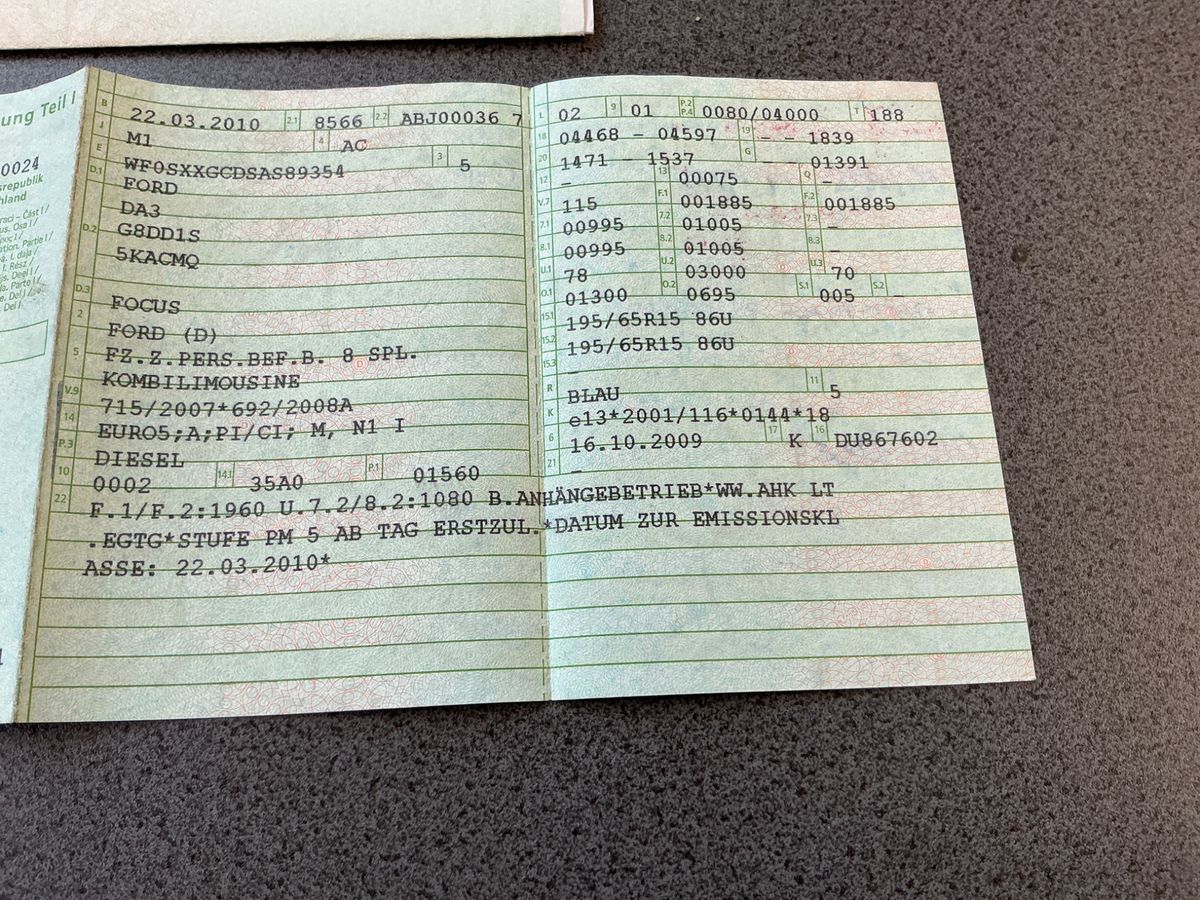 ung Teil I
0024
srepublik
hland
B 22.03.2010 2.1 8566 2.2 ABJ00036 7
J M1 4 AC
E WF0SXXGCDSAS89354 3 5
D.1 FORD
DA3
D.2 G8DD1S
5KACMQ
D.3 FOCUS
2 FORD (D)
5 FZ.Z.PERS.BEF.B. 8 SPL.
KOMBILIMOUSINE
V.9 715/2007*692/2008A
14 EURO5;A;PI/CI; M, N1 I
P.3 DIESEL
10 0002 14.1 35A0 P.1 01560
L 02 9 01 P.2 P.4 0080/04000 T 188
18 04468 - 04597 19 - - 1839
20 1471 - 1537 G - - 01391
12 - 13 00075 Q -
V.7 115 F.1 001885 F.2 001885
7.1 00995 7.2 01005 7.3 -
8.1 00995 8.2 01005 8.3 -
U.1 78 U.2 03000 U.3 70
O.1 01300 O.2 0695 S.1 005 S.2 -
15.1 195/65R15 86U
15.2 195/65R15 86U
15.3 -
R BLAU 11 5
K e13*2001/116*0144*18
6 16.10.2009 17 K 16 DU867602
21 -
22 F.1/F.2:1960 U.7.2/8.2:1080 B.ANHÄNGEBETRIEB*WW.AHK LT
.EGTG*STUFE PM 5 AB TAG ERSTZUL.*DATUM ZUR EMISSIONSKL
ASSE: 22.03.2010*